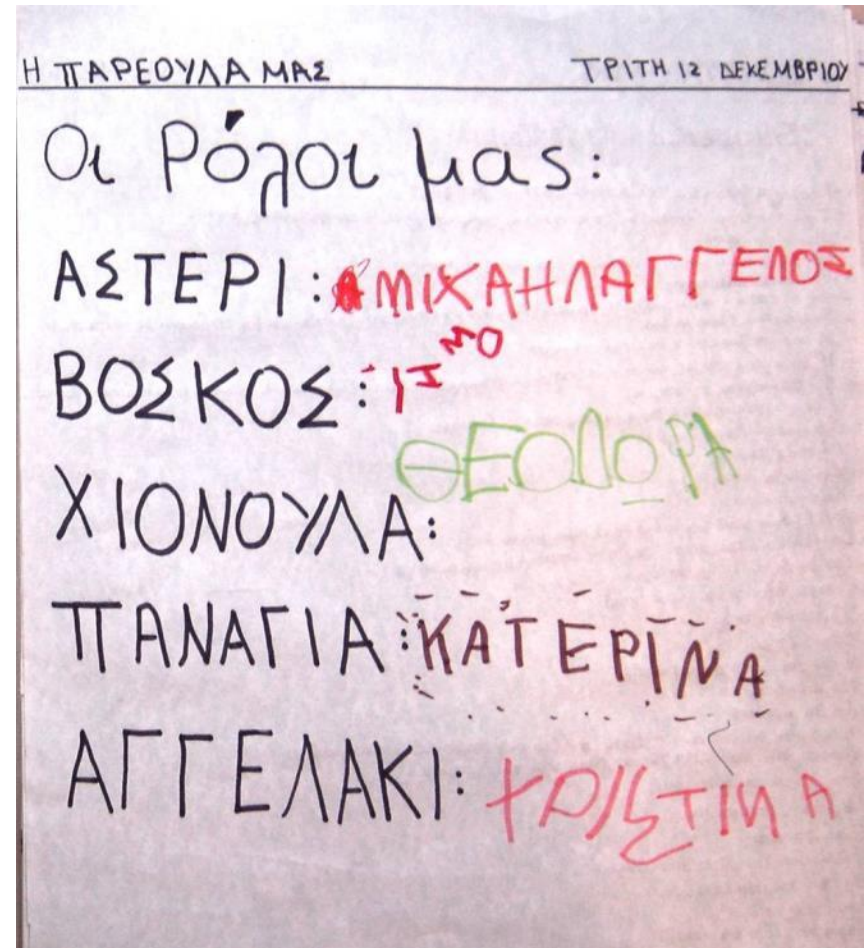 Η ΠΑΡΕΟΥΛΑ ΜΑΣ ΤΡΙΤΗ 12 ΔΕΚΕΜΒΡΙΟΥ
Οι Ρόλοι μας:
ΑΣΤΕΡΙ: ΜΙΧΑΗΛΑΓΓΕΛΟΣ
ΒΟΣΚΟΣ:
ΘΕΟΔΩΡΑ
ΧΙΟΝΟΥΛΑ:
ΠΑΝΑΓΙΑ: ΚΑΤΕΡΙΝΑ
ΑΓΓΕΛΑΚΙ: ΧΡΙΣΤΙΝΑ